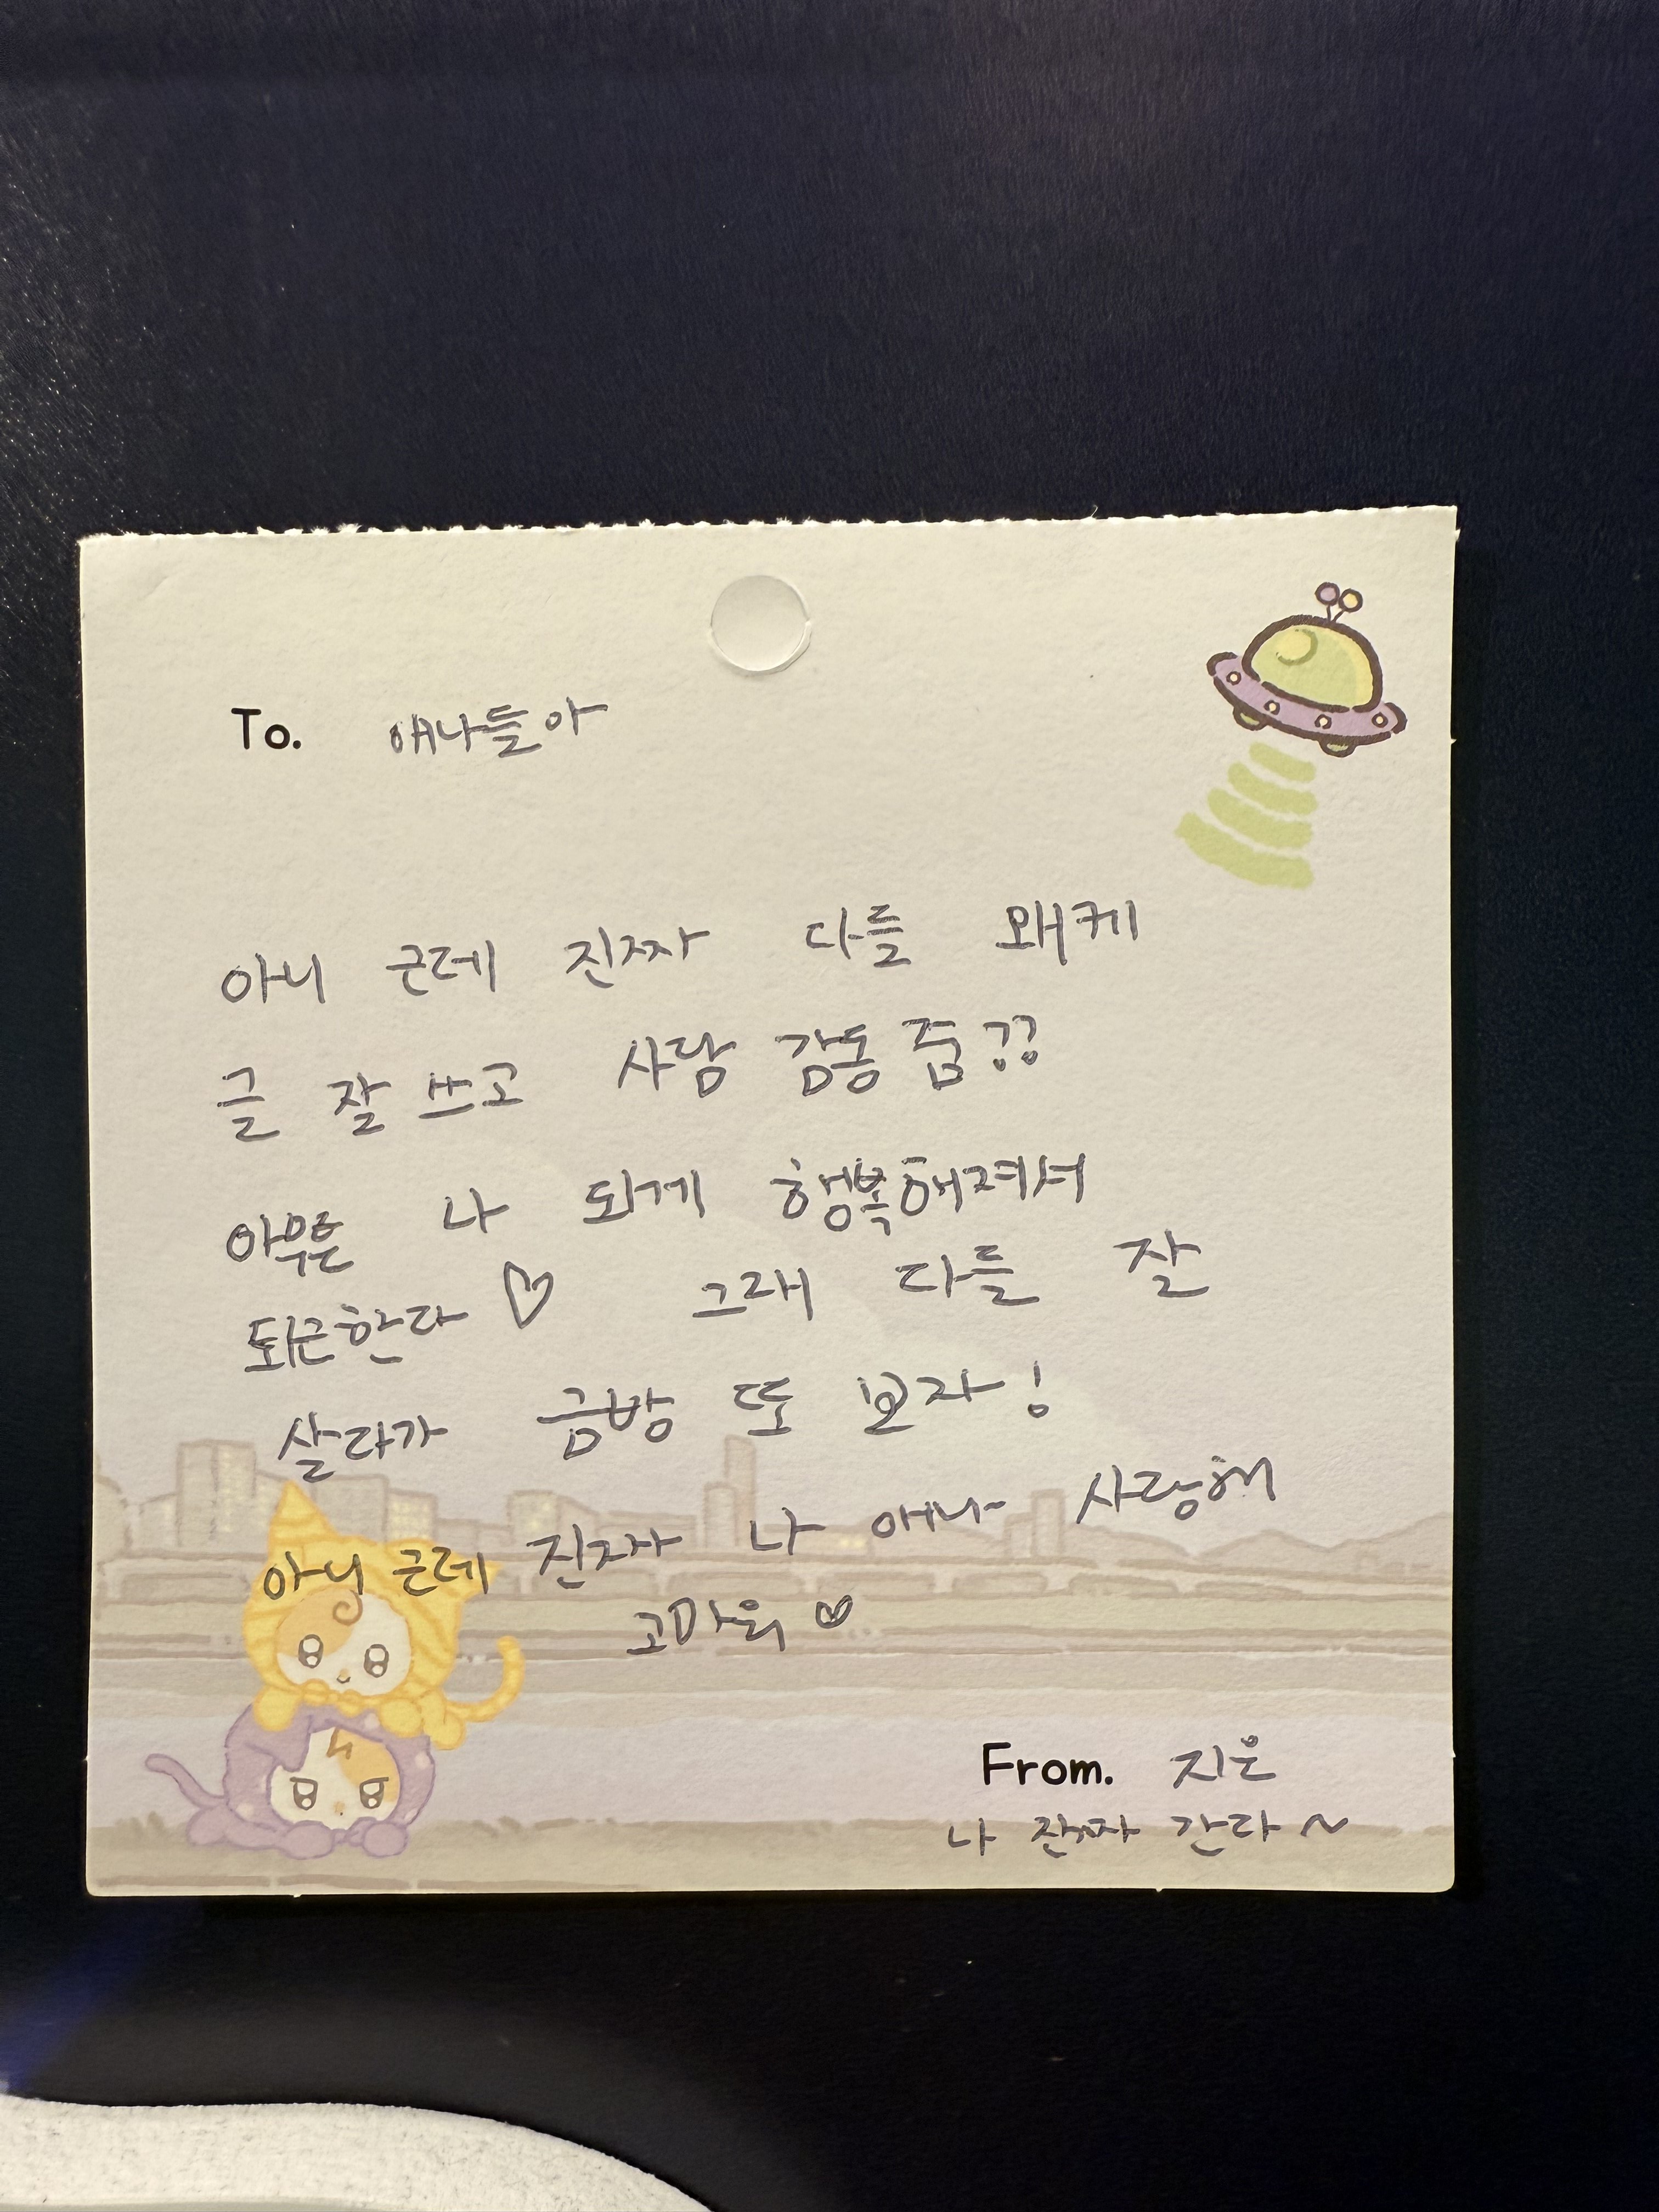 To. 애나들아
아니 근데 진짜 다들 왜케
글 잘 쓰고 사람 감동 줌??
아무튼 나 되게 행복해져서
퇴근한다 ♡ 그래 다들 잘
살다가 금방 또 보자!
아니 근데 진짜 나 애나 사랑해
고마워 ♡
From. 지은
나 진짜 간다~